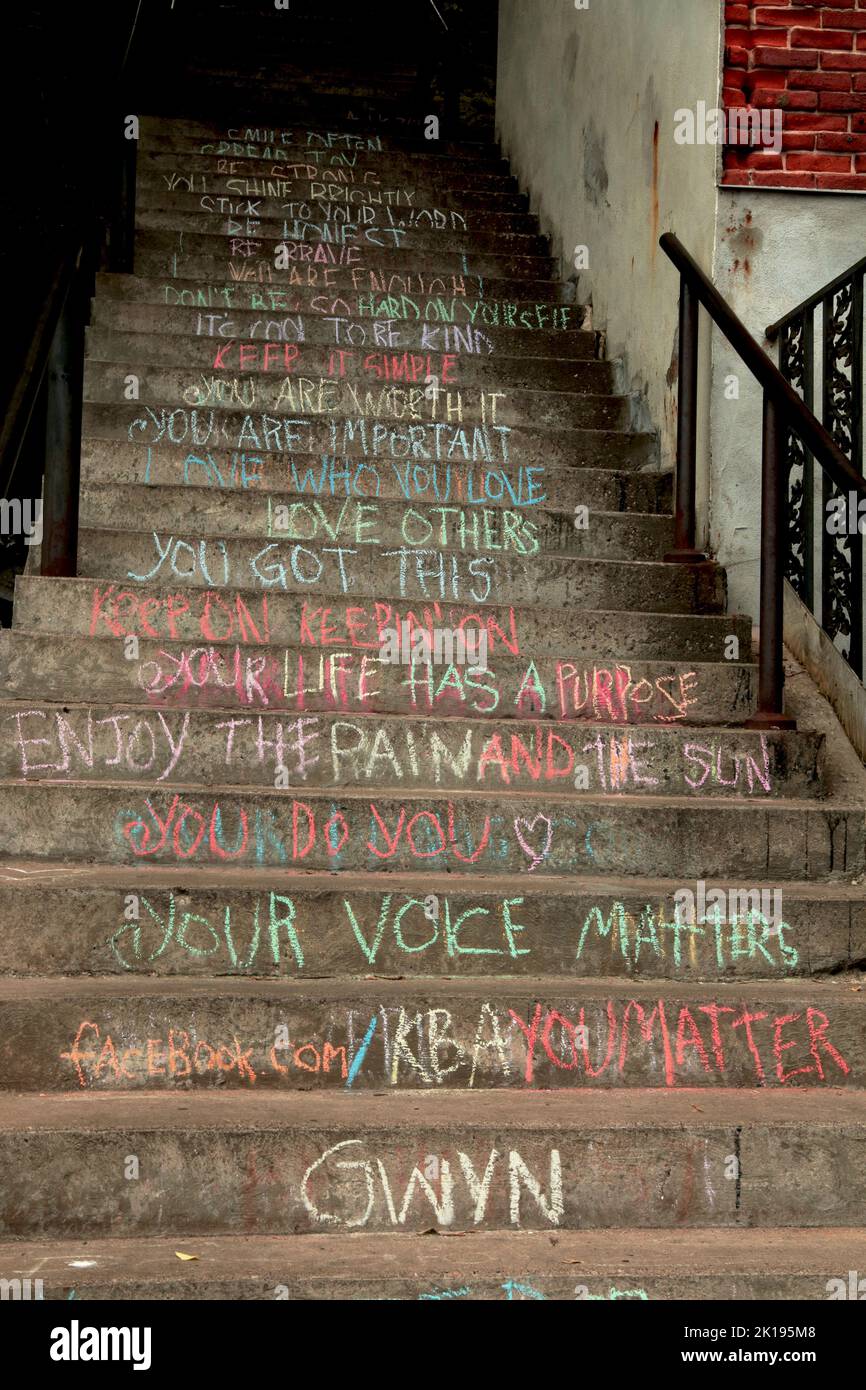 SMILE OFTEN
SPREAD JOY
BE STRONG
YOU SHINE BRIGHTLY
STICK TO YOUR WORD
BE HONEST
BE BRAVE
YOU ARE ENOUGH!
DON'T BE SO HARD ON YOURSELF
IT'S COOL TO BE KIND
KEEP IT SIMPLE
YOU ARE WORTH IT
YOU ARE IMPORTANT
LOVE WHO YOU LOVE
LOVE OTHERS
YOU GOT THIS
KEEP ON KEEPIN' ON
YOUR LIFE HAS A PURPOSE
ENJOY THE RAIN AND THE SUN
YOU DO YOU
YOUR VOICE MATTERS
FACEBOOK.COM/KBAYOUMATTER
GWYN
alamy
Image ID: 2K195M8
www.alamy.com